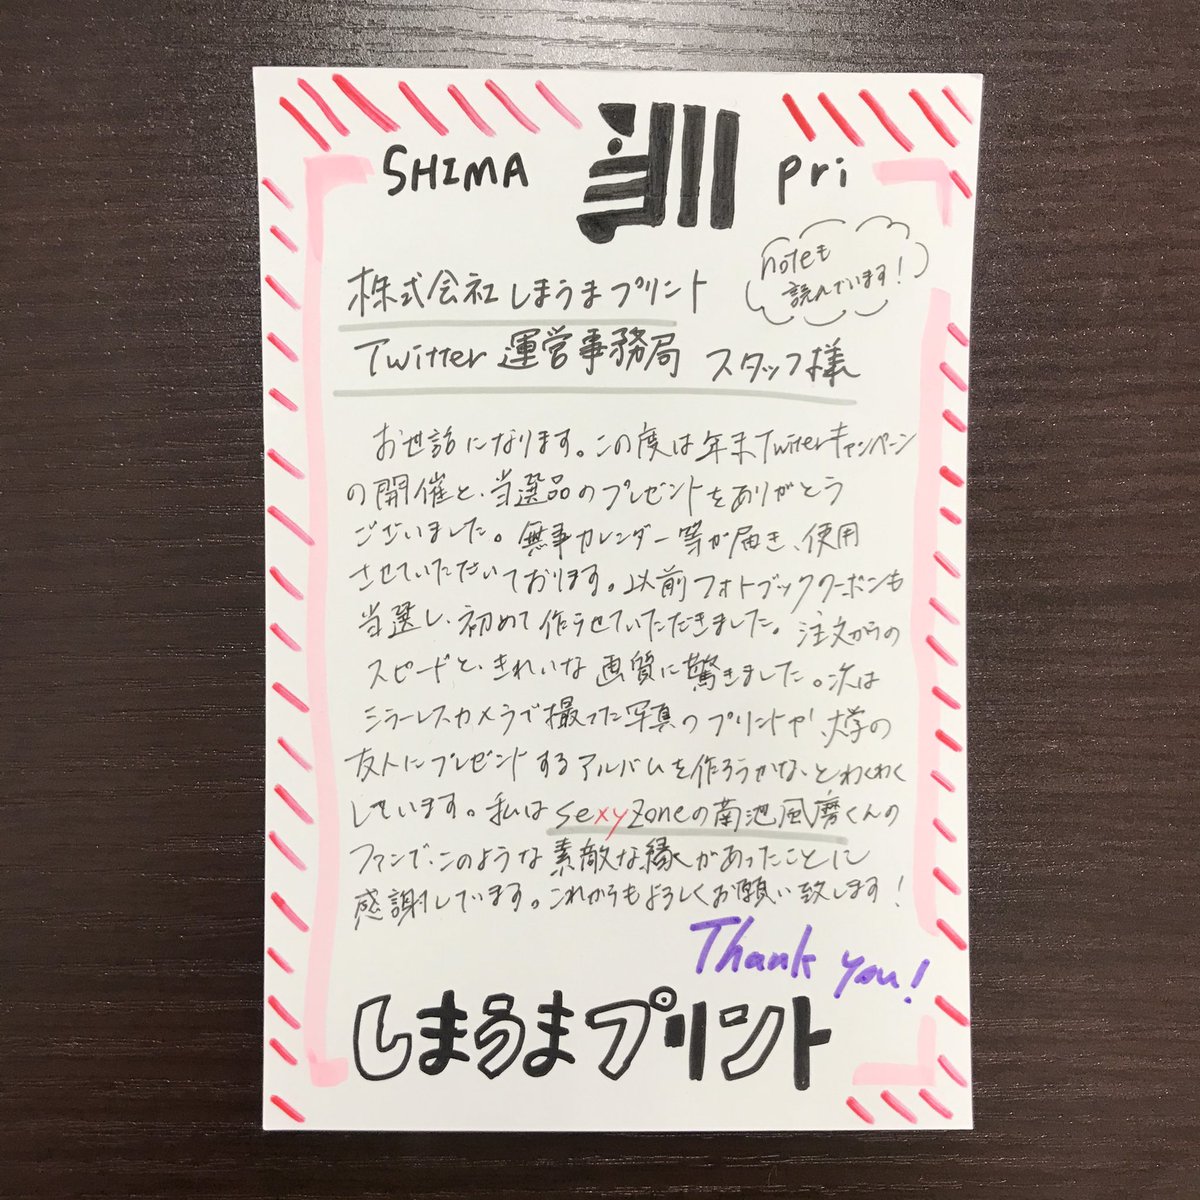 SHIMA
pri
noteも
読んでいます!
株式会社しまうまプリント
Twitter運営事務局 スタッフ様
お世話になります。この度は年末Twitterキャンペーン
の開催と、当選品のプレゼントをありがとう
ございました。無事カレンダー等が届き、使用
させていただいております。以前フォトブッククーポンも
当選し、初めて作らせていただきました。注文からの
スピードと、きれいな画質に驚きました。次は
ミラーレスカメラで撮ってた写真のプリントや、大学の
友人にプレゼントするアルバムを作ろうかな、とわくわく
しています。私はSexyZoneの菊池風磨くんの
ファンで、このような素敵な縁があったことに
感謝しています。これからもよろしくお願い致します!
Thank you!
しまうまプリント